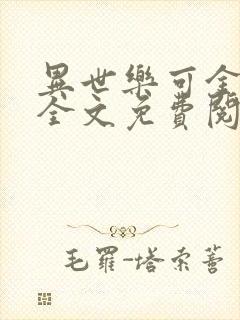 異世樂可全
全文免費閱
毛羅-塔索蒈